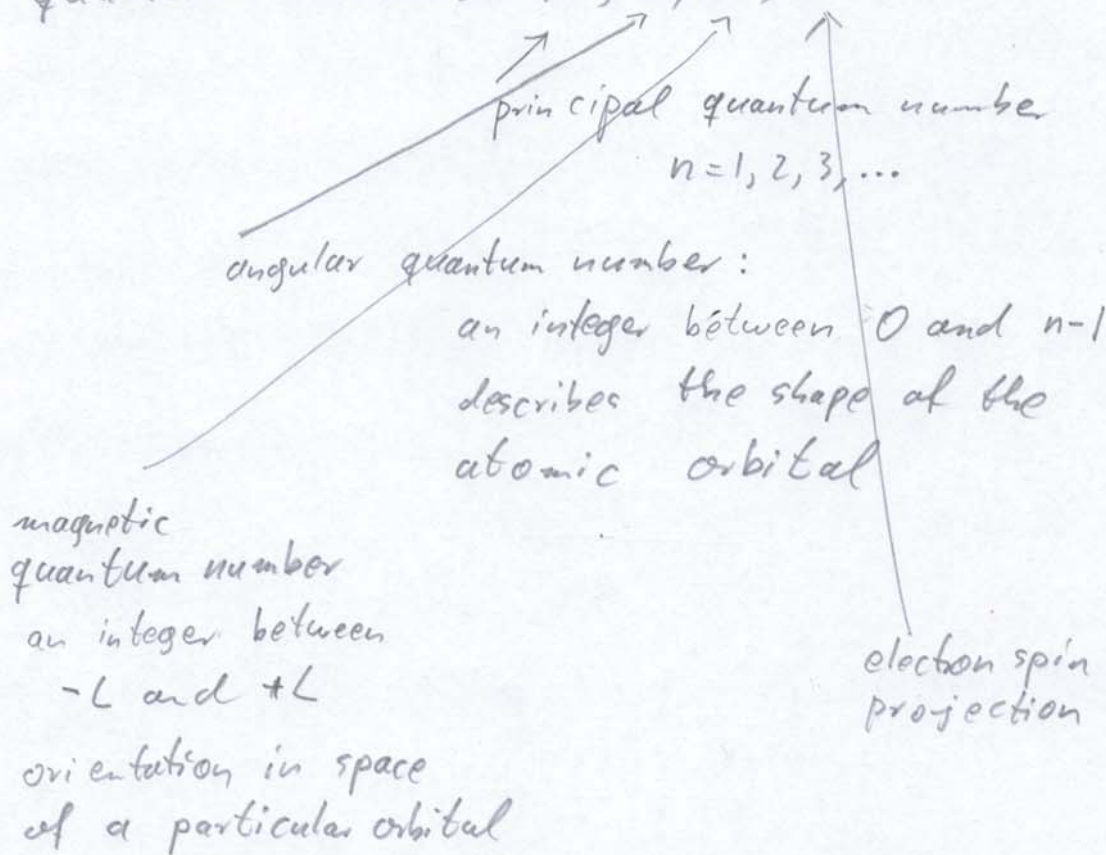 principal quantum number
n=1, 2, 3, ...
angular quantum number :
an integer between 0 and n-1
describes the shape of the
atomic orbital
magnetic
quantum number
an integer between
-L and +L
orientation in space
of a particular orbital
electron spin
projection